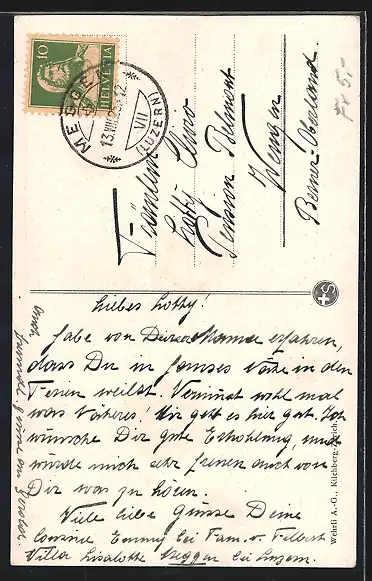 10
HELVETIA
MEGGEN
13.VIII.25-12
VIII
(LUZERN)
Fr 5.-
Fräulein
Lotty
Pension Belmont
Wengen
Berner-Oberland.
S
Liebes Lotty!
habe von Deiner Mama erfahren,
dass Du in famoses Nähe in den
Ferien weilst. Vernimmt wohl mal
was Näheres! Mir geht es hier gut. Ich
wünsche Dir gute Erholung, und
würde mich sehr freuen auch von
Dir was zu hören.
Viele liebe Grüsse Deine
Cousine Emmy bei Fam. v.
Villa Liselotte Meggen bei Luzern.
Wehrli A.-G., Kilchberg-Zürich.